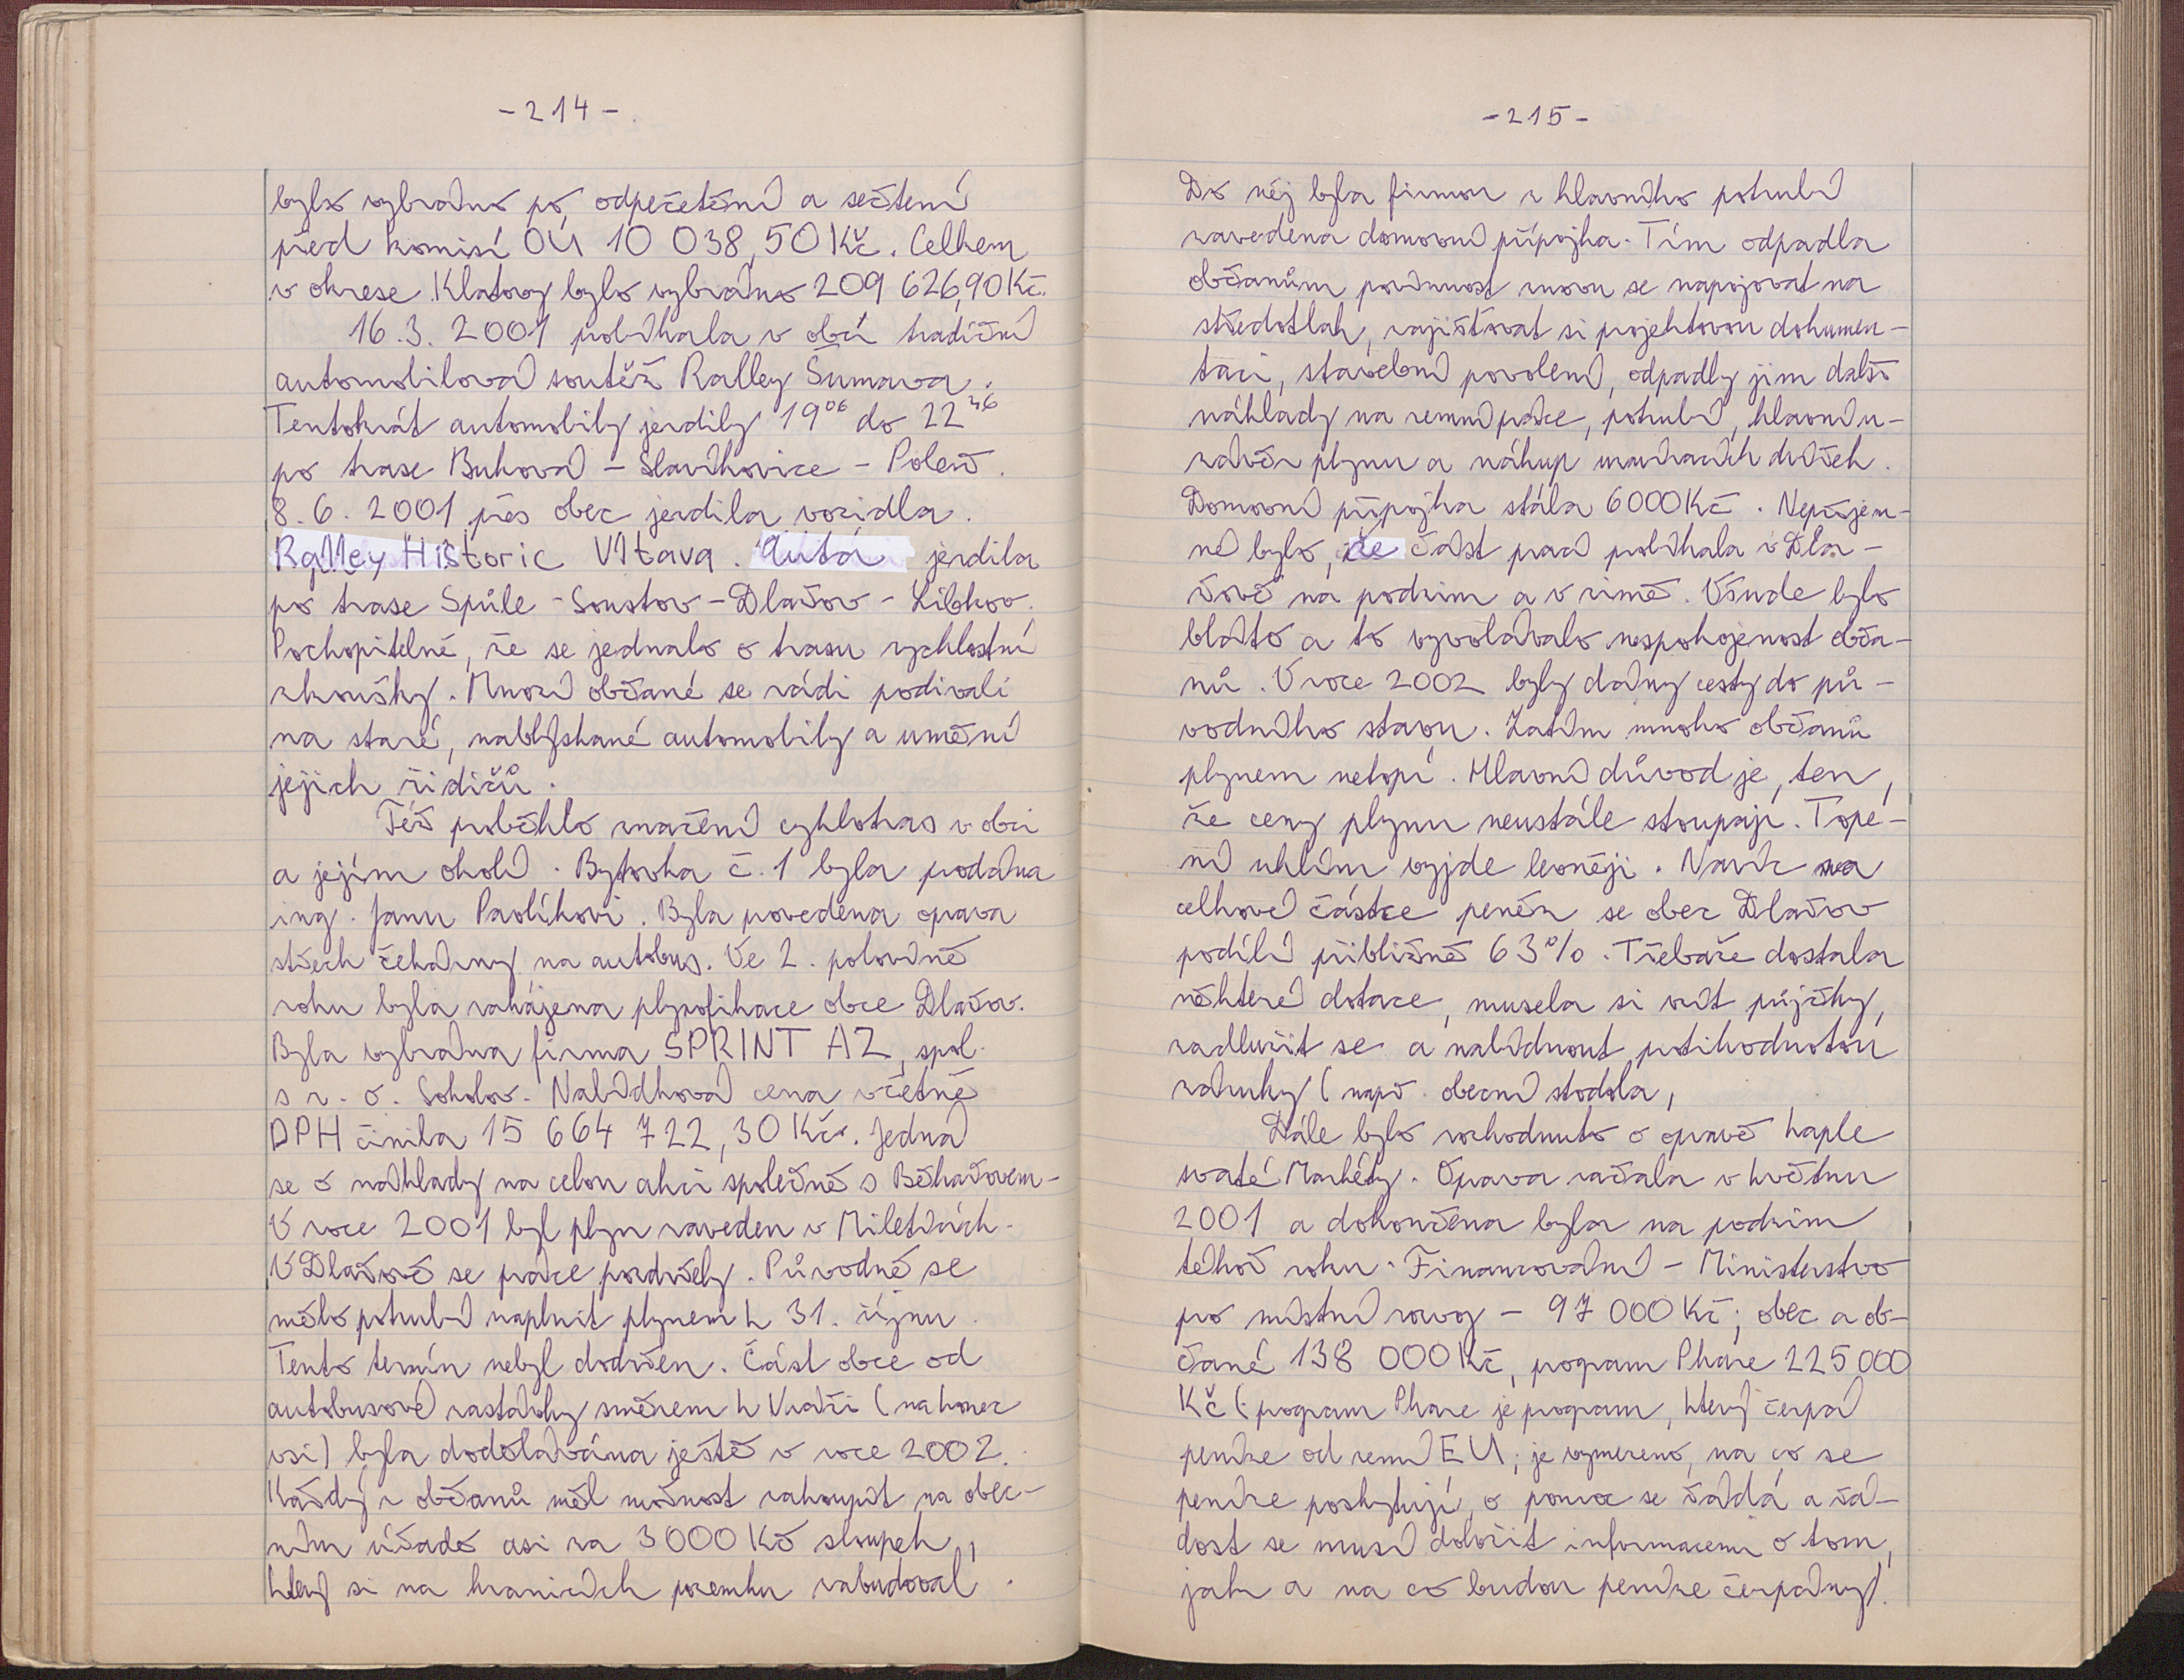 -214-
bylo vybráno po odpečetění a sečtení
před komisí OÚ 10 038,50 Kč. Celkem
v okrese Klatovy bylo vybráno 209 626,90 Kč.
16.3. 2001 probíhala v obci tradiční
automobilová soutěž Ralley Šumava.
Tentokrát automobily jezdily 19⁰⁶ do 22⁴⁶
po trase Buková - Slavíkovice - Poleň.
8.6. 2001 přes obec jezdila vozidla
Ralley Historic Vltava. Auta jezdila
po trase Spůle - Soustov - Dlažov - Libkov.
Pochopitelně, že se jednalo o trasu rychlostní
zkoušky. Mnozí občané se rádi podívali
na staré, nablýskané automobily a umění
jejich řidičů.
Též proběhlo značení cyklotras v obci
a jejím okolí. Bytovka č. 1 byla prodána
ing. Janu Pavlíkovi. Byla provedena oprava
střech čekárny na autobus. Ve 2. polovině
roku byla zahájena plynofikace obce Dlažov.
Byla vybrána firma SPRINT AZ, spol.
s r. o. Sokolov. Nabídková cena včetně
DPH činila 15 664 722,30 Kč. Jedná
se o náklady na celou akci společně s Běhařovem.
V roce 2001 byl plyn zaveden v Miletičích.
V Dlažově se práce pozdržely. Původně se
mělo potrubí naplnit plynem k 31. říjnu.
Tento termín nebyl dodržen. Část obce od
autobusové zastávky směrem k Vráži (na konec
vsi) byla dodělávána ještě v roce 2002.
Každý z občanů měl možnost zakoupit na obec-
ním úřadě asi za 3000 Kč sloupek,
který si na hranicích pozemku zabudoval.
-215-
Do něj byla firmou z hlavního potrubí
zavedena domovní přípojka. Tím odpadla
občanům povinnost znovu se napojovat na
středotlak, zajišťovat si projektovou dokumen-
taci, stavební povolení, odpadly jim další
náklady na zemní práce, potrubí, hlavní u-
závěr plynu a nákup uzavíracích
Domovní přípojka stála 6000 Kč. Nepříjem-
né bylo, že část prací probíhala v Dla-
žově na podzim a v zimě. Všude bylo
bláto a to vyvolávalo nespokojenost obča-
nů. V roce 2002 byly dány cesty do pů-
vodního stavu. Zatím mnoho občanů
plynem netopí. Hlavní důvod je, ten,
že ceny plynu neustále stoupají. Tope-
ní uhlím vyjde levněji. Navíc na
celkové částce peněz se obec Dlažov
podílí přibližně 63%. Třebaže dostala
některé dotace, musela si vzít půjčky,
zadlužit se a nabídnout protihodnotou
záruky (např. obecní stodola,
Dále bylo rozhodnuto o opravě kaple
svaté Markéty. Oprava začala v květnu
2001 a dokončena byla na podzim
téhož roku. Financování - Ministerstvo
pro místní rozvoj - 97 000 Kč; obec a ob-
čané 138 000 Kč, program Phare 225 000
Kč (program Phare je program, který čerpá
peníze od zemí EU; je vymezeno, na co se
peníze poskytují, o pomoc se žádá a žá-
dost se musí doložit informacemi o tom,
jak a na co budou peníze čerpány).